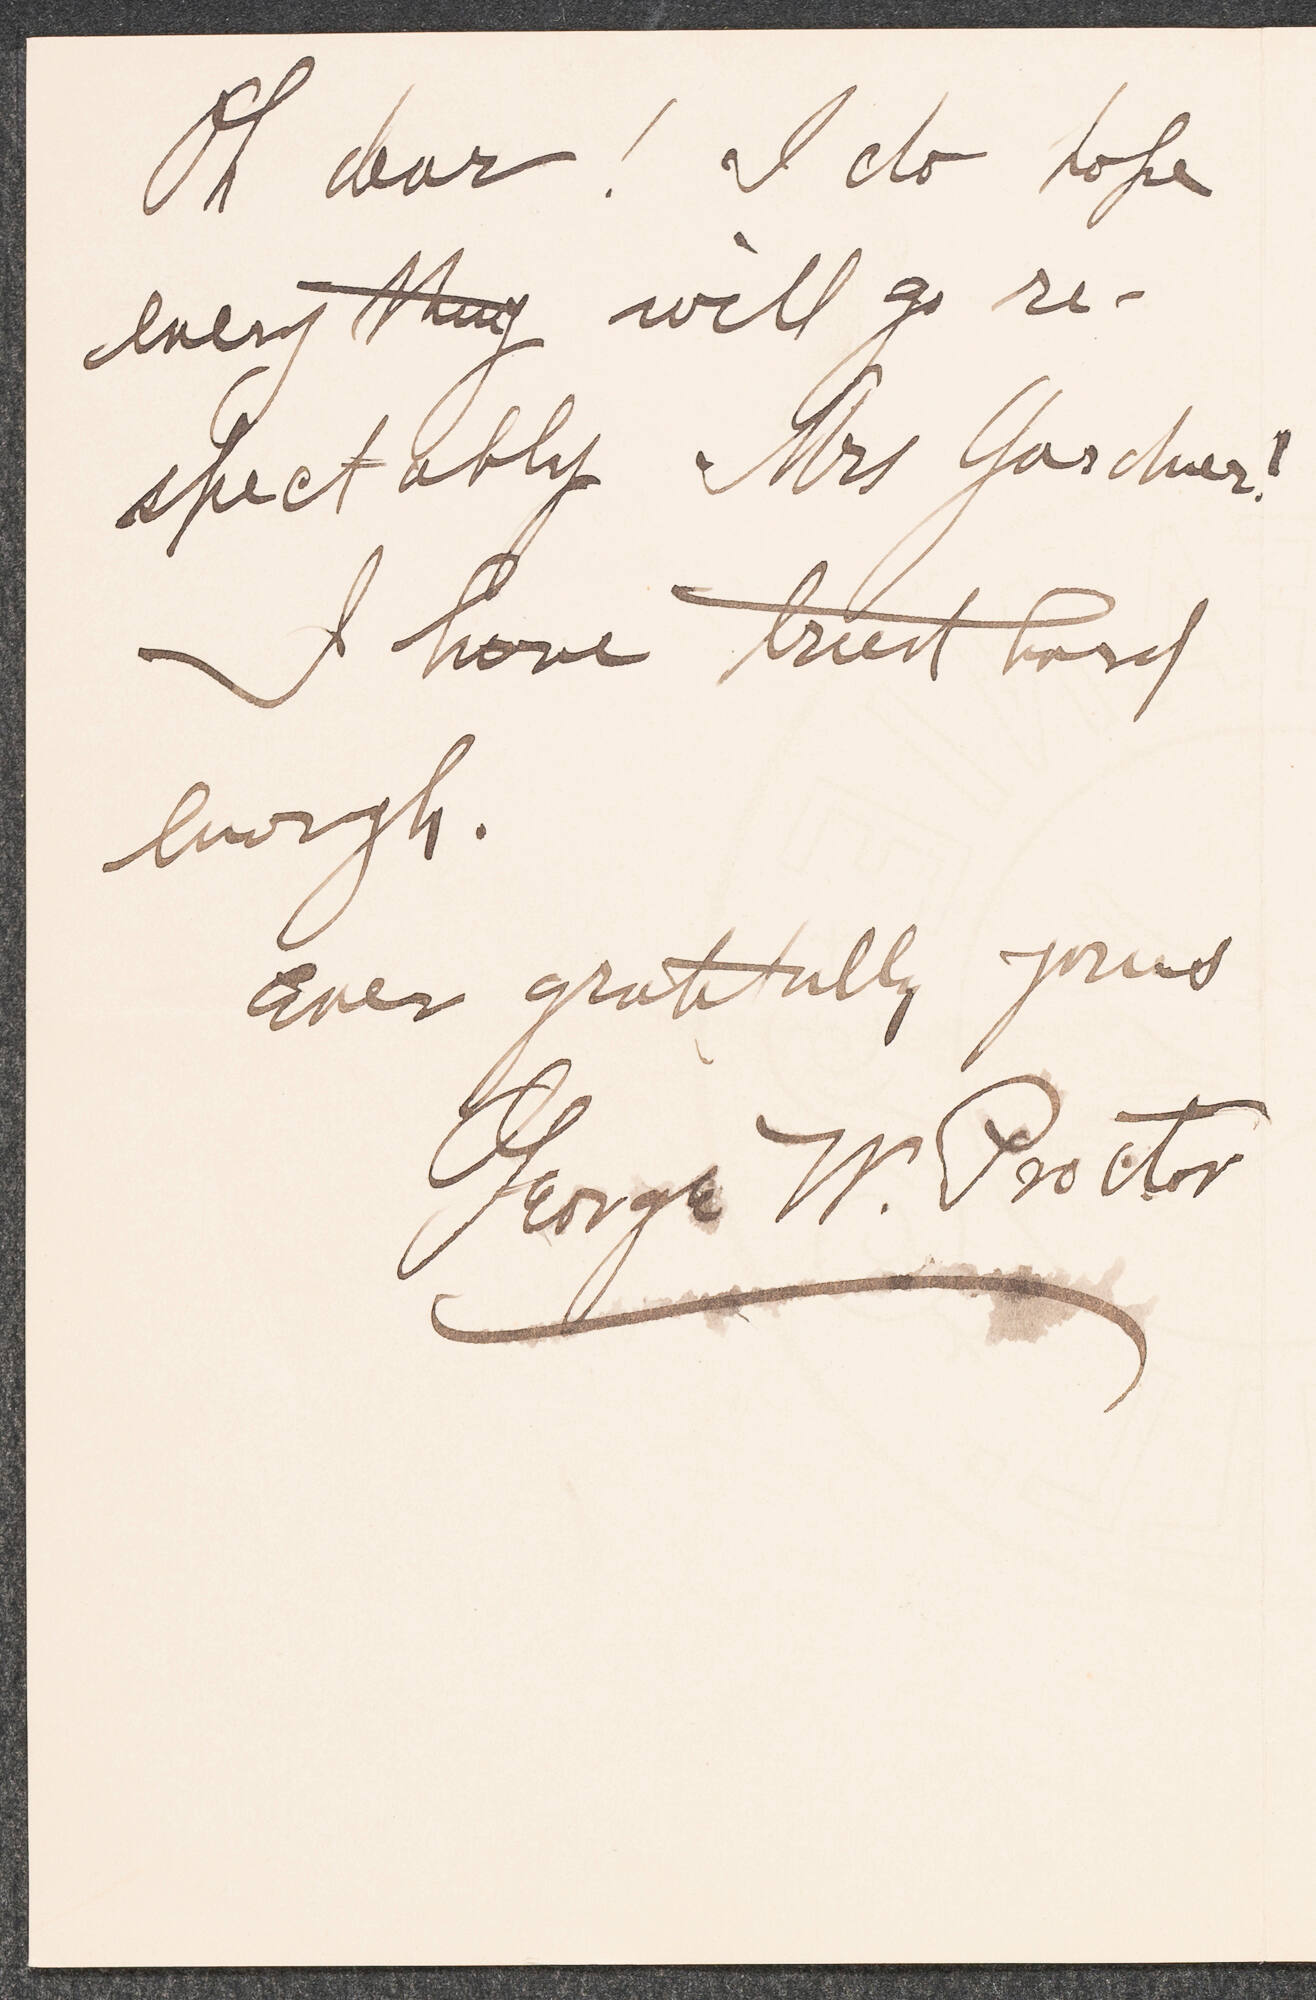 Oh dear! I do hope
everything will go re-
spectably Mrs Gardner!
I have tried hard
enough.
Ever gratefully yours
George W. Proctor